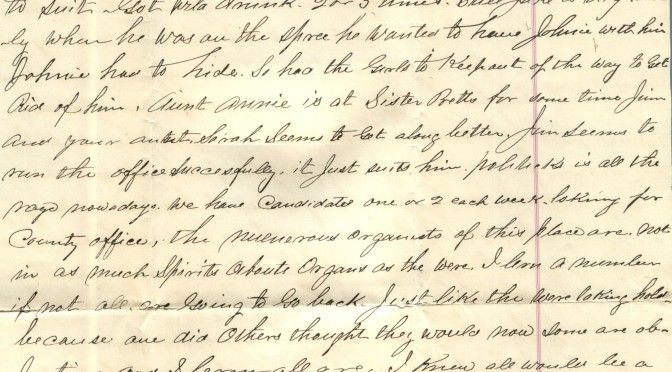 to suit. Got drunk. for 3 times.
ly when he was on the spree he wanted to have Johnie with him
Johnie had to hide. So had the Girls to Keep out of the way to Get
Rid of him. Aunt Annie is at Sister Beths for some time Jim
and your aunt Sarah Seems to Get along better. Jim seems to
run the office successfully. it Just suits him. politicks is all the
rage nowadays. we have Candidates one or 2 each week. Asking for
County office, the numerous organists of this place are not
in as much Spirits abouts Organs as the were. I lern a number
if not all are Going to Go back Just like the were taking holed
because one did Others thought they would now some are ob-
all are, I knew all would be a